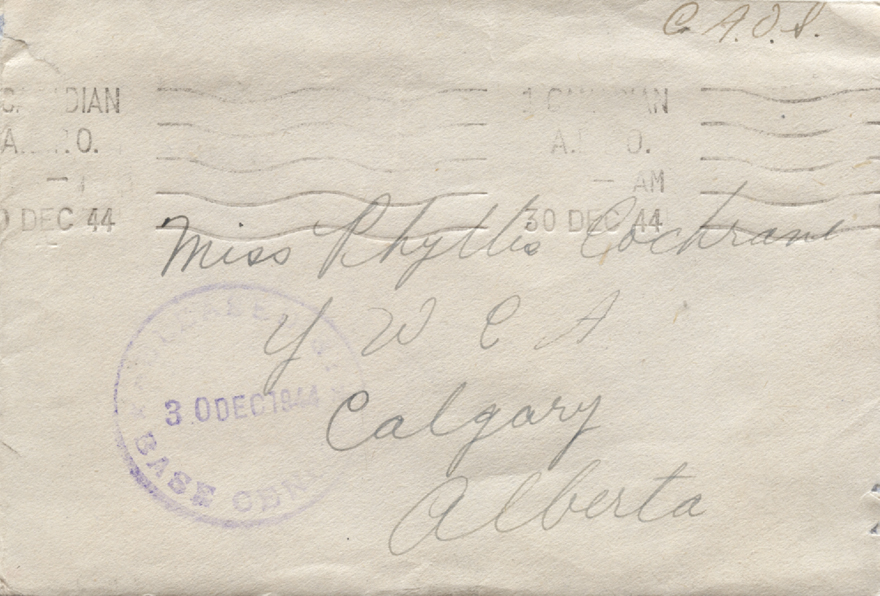 C. A. O. S.
DIAN
A. O.
DEC 44
A. O.
AM
30 DEC 44
Miss Phyllis Cochrane
Y W C A
Calgary
Alberta
30 DEC 1944
BASE